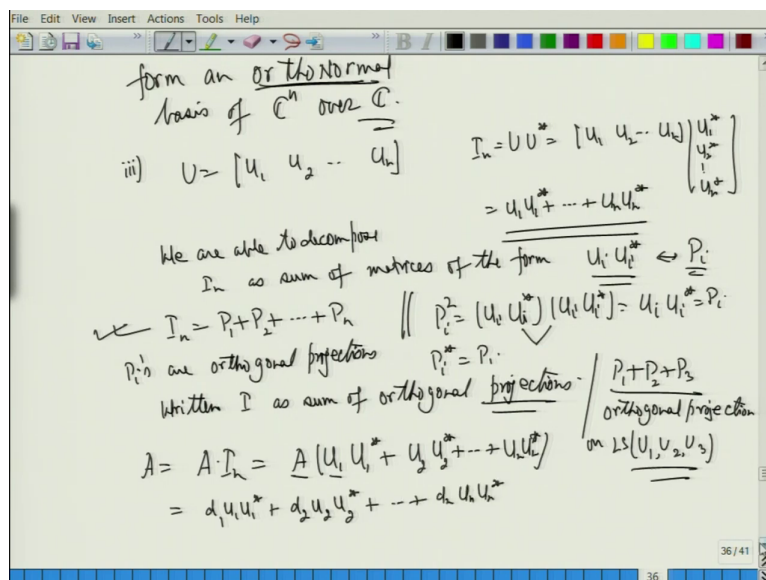 File Edit View Insert Actions Tools Help
form an orthoNormal
basis of ℂⁿ over ℂ.
iii) U = [u₁ u₂ -- uₙ]
Iₙ = U U* = [u₁ u₂ -- uₙ] [u₁* u₂* ⋮ uₙ*]
= u₁u₁* + --- + uₙuₙ*
We are able to decompose
Iₙ as sum of matrices of the form uᵢ uᵢ* ↔ Pᵢ
Iₙ = P₁+P₂+ --- +Pₙ || Pᵢ² = (uᵢ uᵢ*) (uᵢ uᵢ*) = uᵢ uᵢ* = Pᵢ
Pᵢ's are orthogonal projections Pᵢ* = Pᵢ
Written I as sum of orthogonal projections.
P₁+P₂+P₃
orthogonal projection
on LS(u₁, u₂, u₃)
A = A·Iₙ = A (u₁ u₁* + u₂ u₂* + --- + uₙuₙ*)
= d₁u₁u₁* + d₂u₂u₂* + --- + dₙ uₙuₙ*
36/41
36